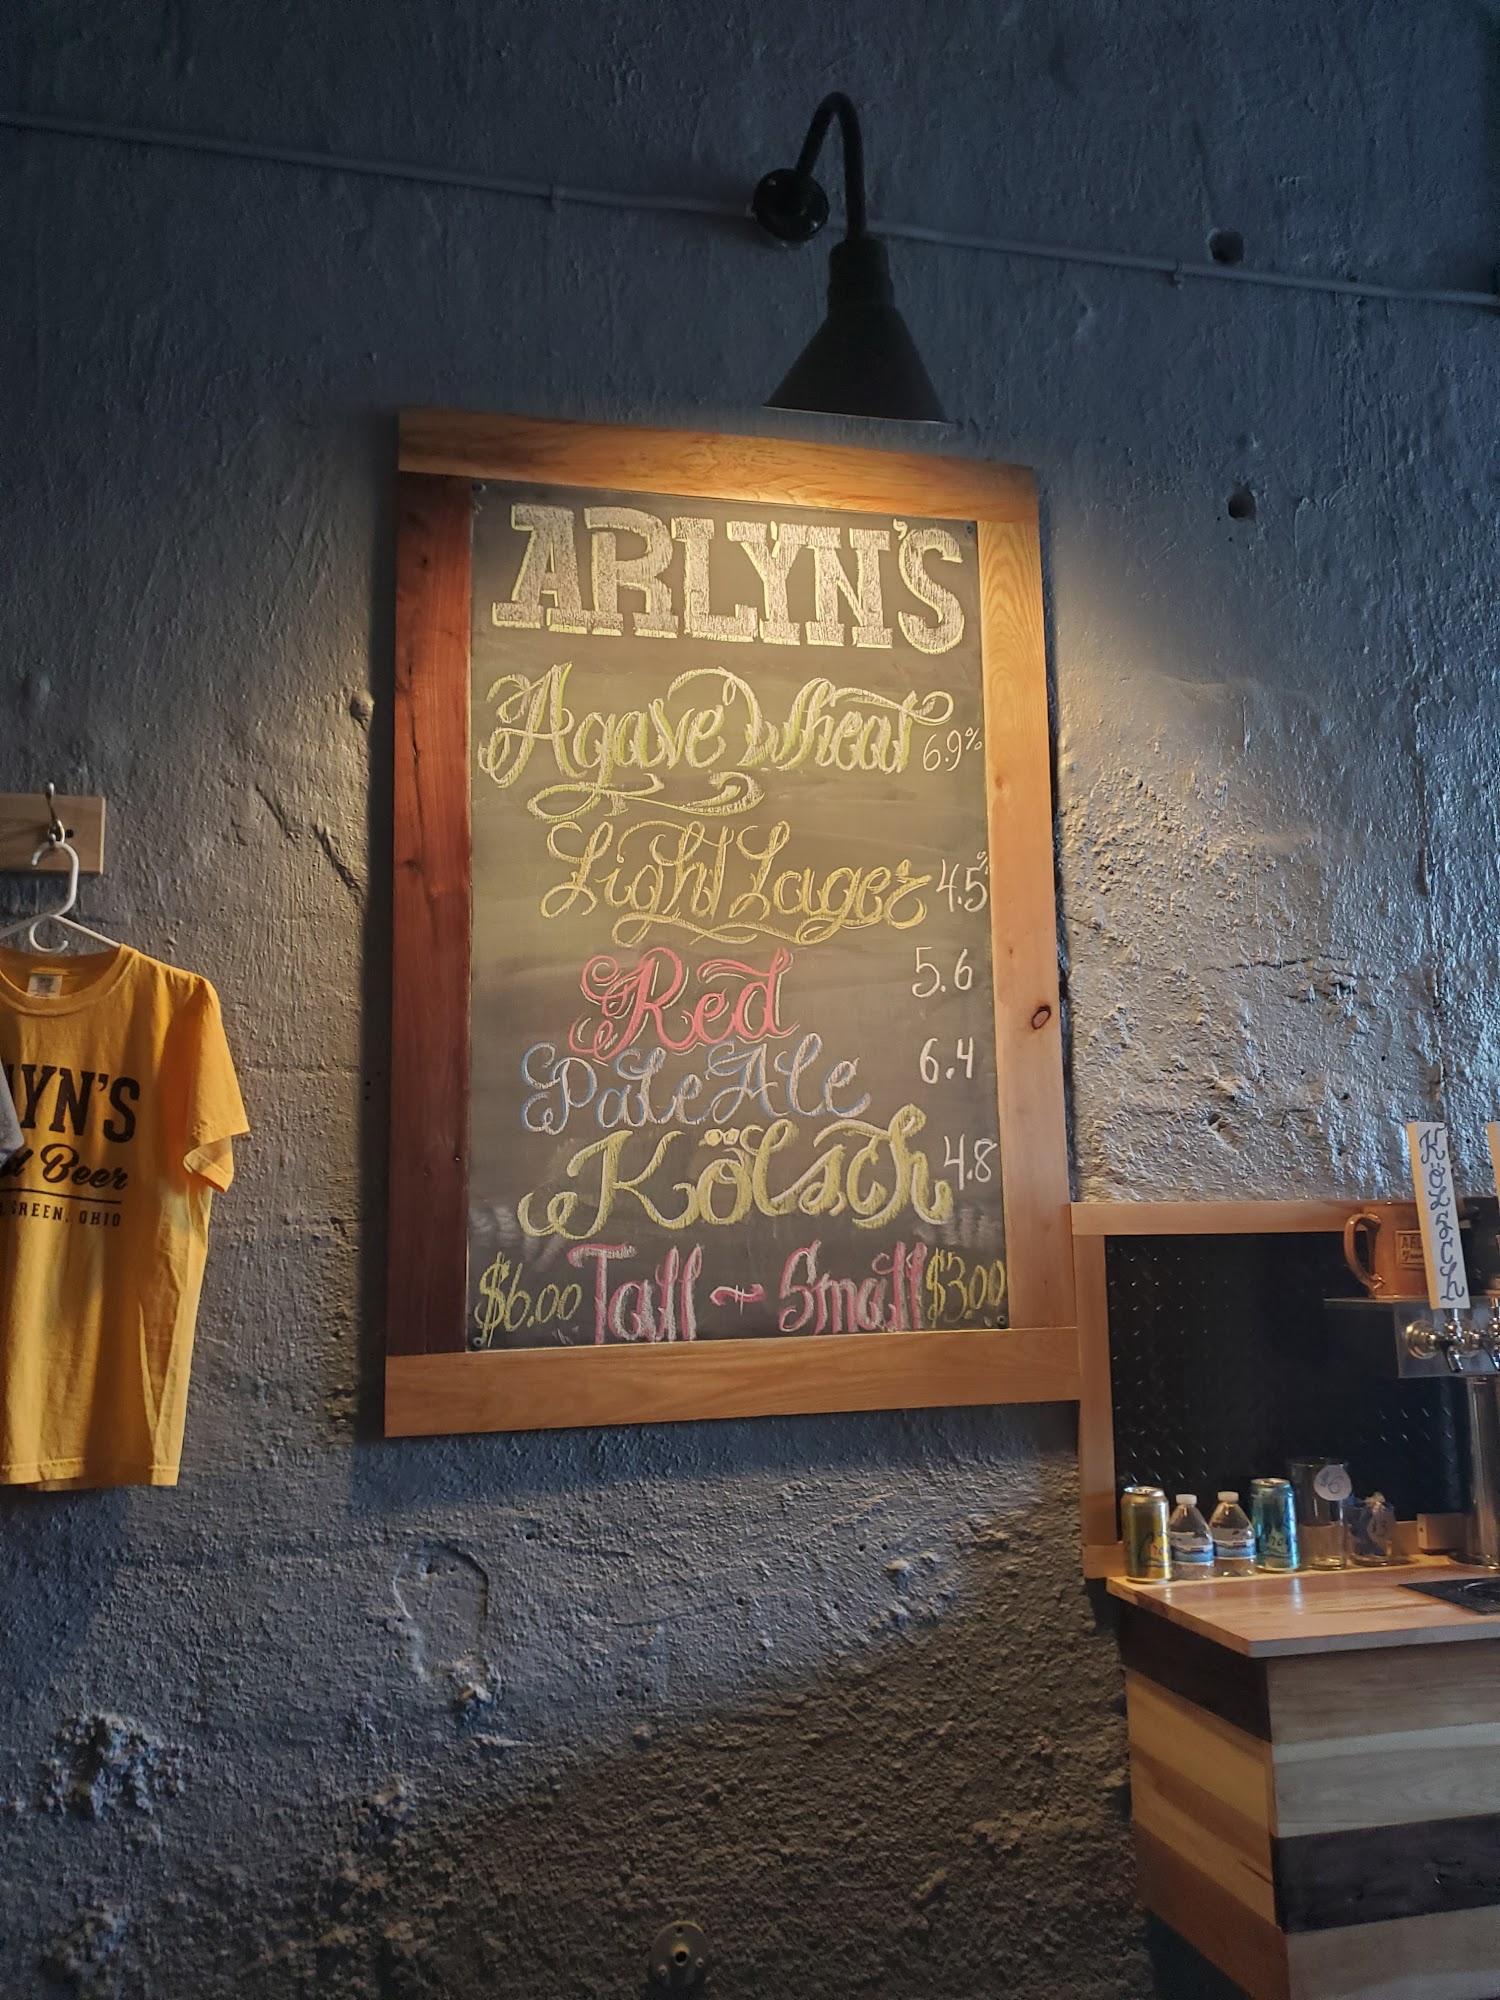 ARLYN'S
Agave Wheat 6.9%
Light Lager 4.5%
Red 5.6
Pale Ale 6.4
Kölsch 4.8
$6.00 Tall ~ Small $3.00
YN'S
d Beer
GREEN, OHIO
KÖLSCH